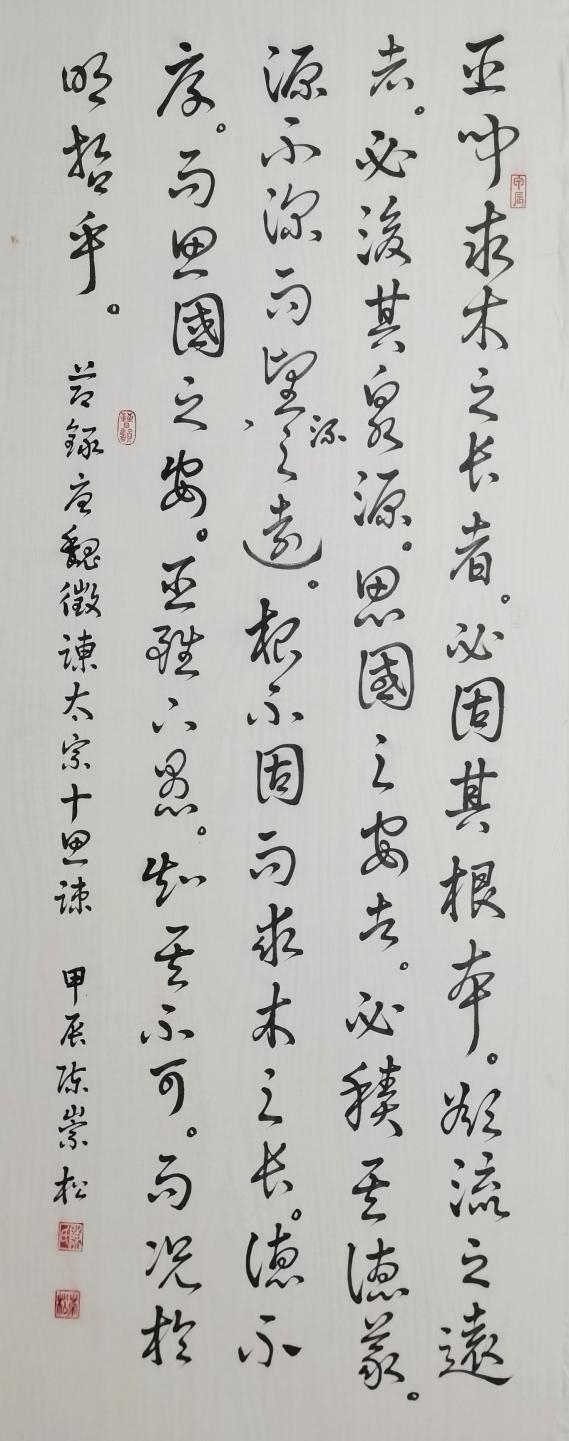 臣聞求木之长者。必固其根本。欲流之遠
者。必浚其泉源。思國之安者。必積其德義。
源不深而望流之遠。根不固而求木之长。德不
厚。而思國之安。臣雖下愚。知其不可。而况於
明哲乎。 節錄唐魏徵諫太宗十思疏 甲辰陳崇松
甲辰